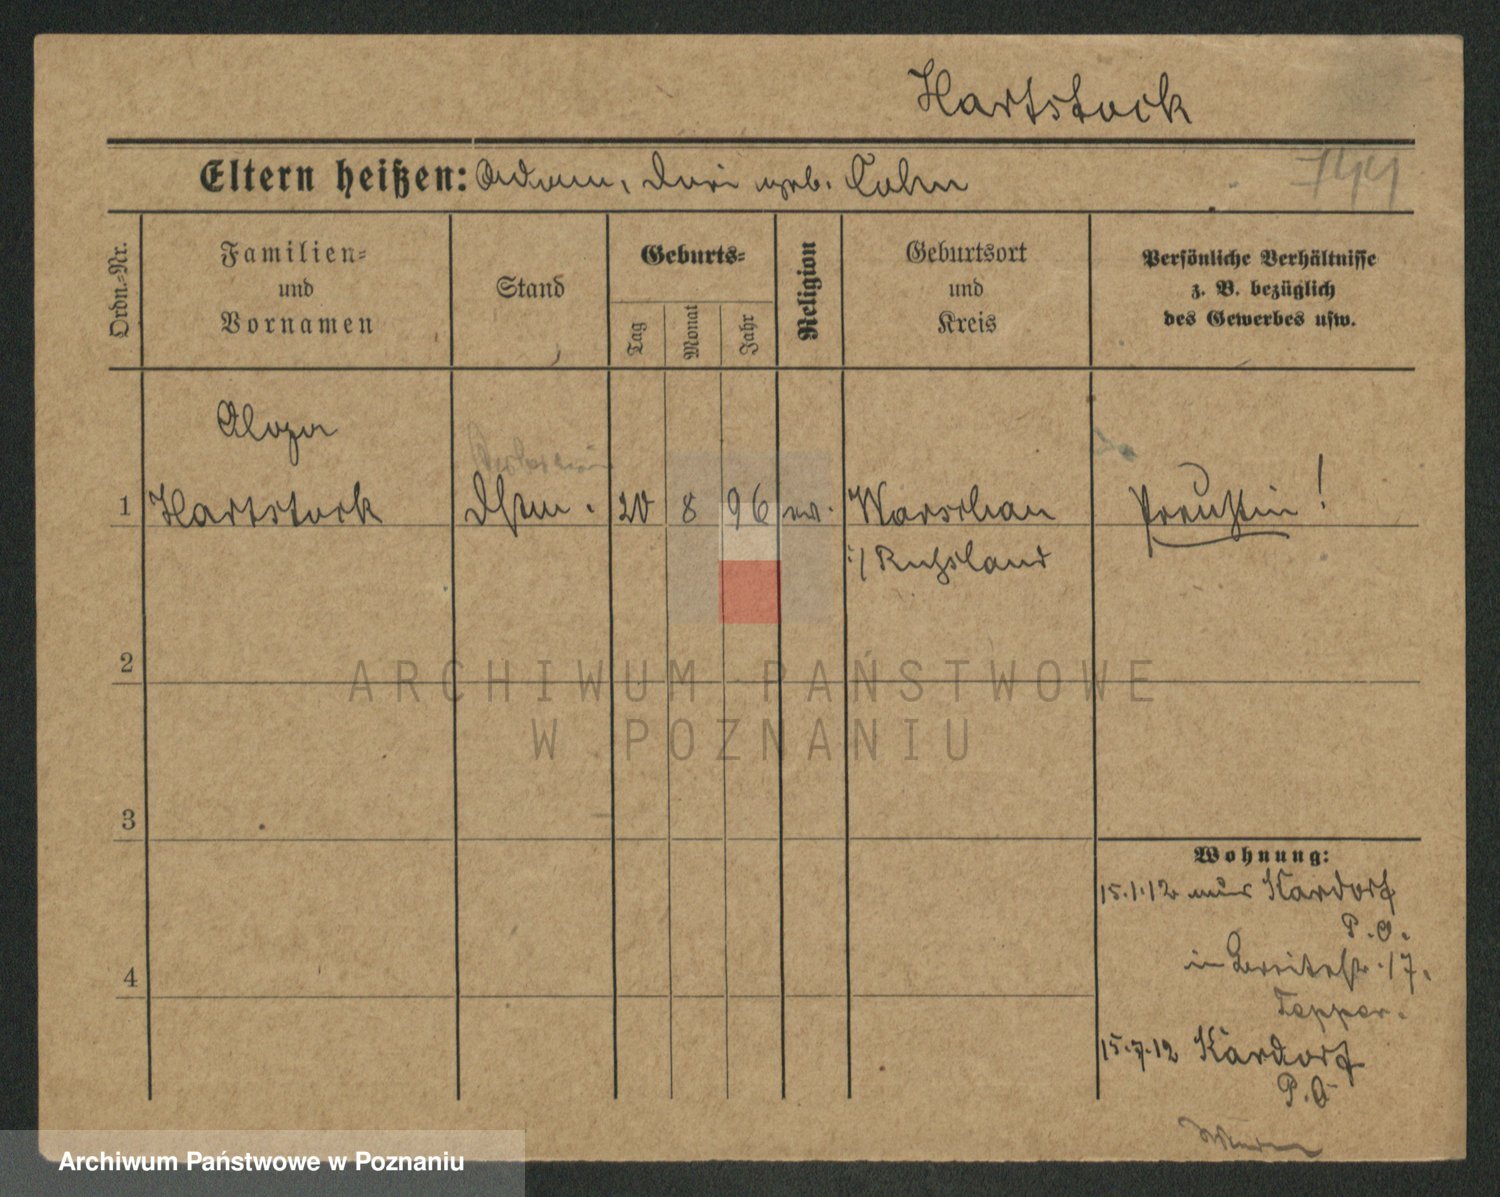 Hartstock
Eltern heißen: Adam, Dori geb. Cohn
744
Ordn.-Nr.
Familien-
und
Vornamen
Stand
Geburts-
Tag
Monat
Jahr
Religion
Geburtsort
und
Kreis
Persönliche Verhältnisse
z. B. bezüglich
des Gewerbes usw.
1
Hartstock
20 8 96
Warschau
i/ Rußland
Preußin!
2
ARCHIWUM PAŃSTWOWE
W POZNANIU
3
4
Wohnung:
15.1.12 aus Kardorf
P. O.
in Breitestr. 17.
Tepper.
15.7.12 Kardorf
P. O
Archiwum Państwowe w Poznaniu